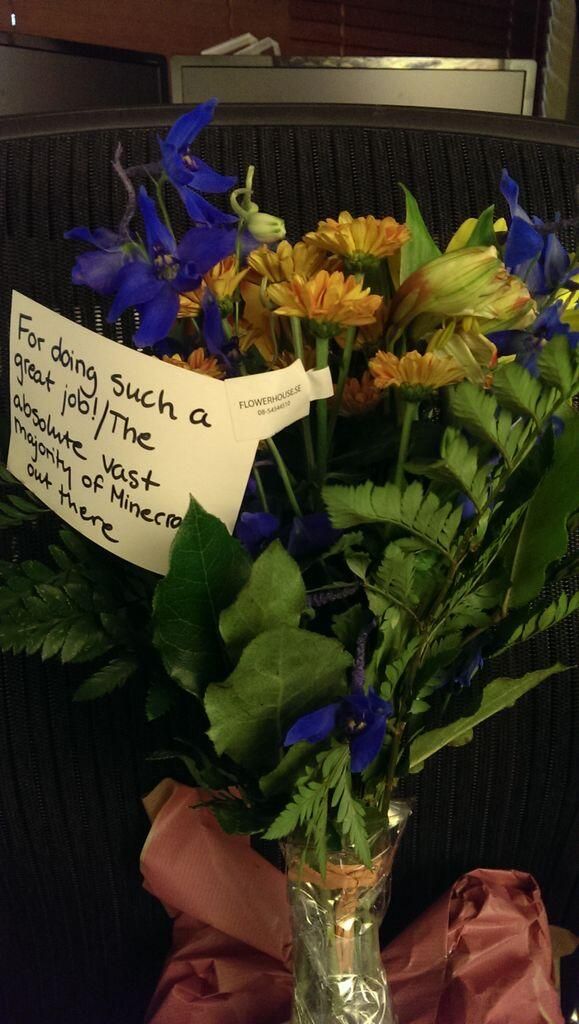 For doing such a
great job!/The
absolute vast
majority of Minecra
out there
FLOWERHOUSE.SE
08-54544510